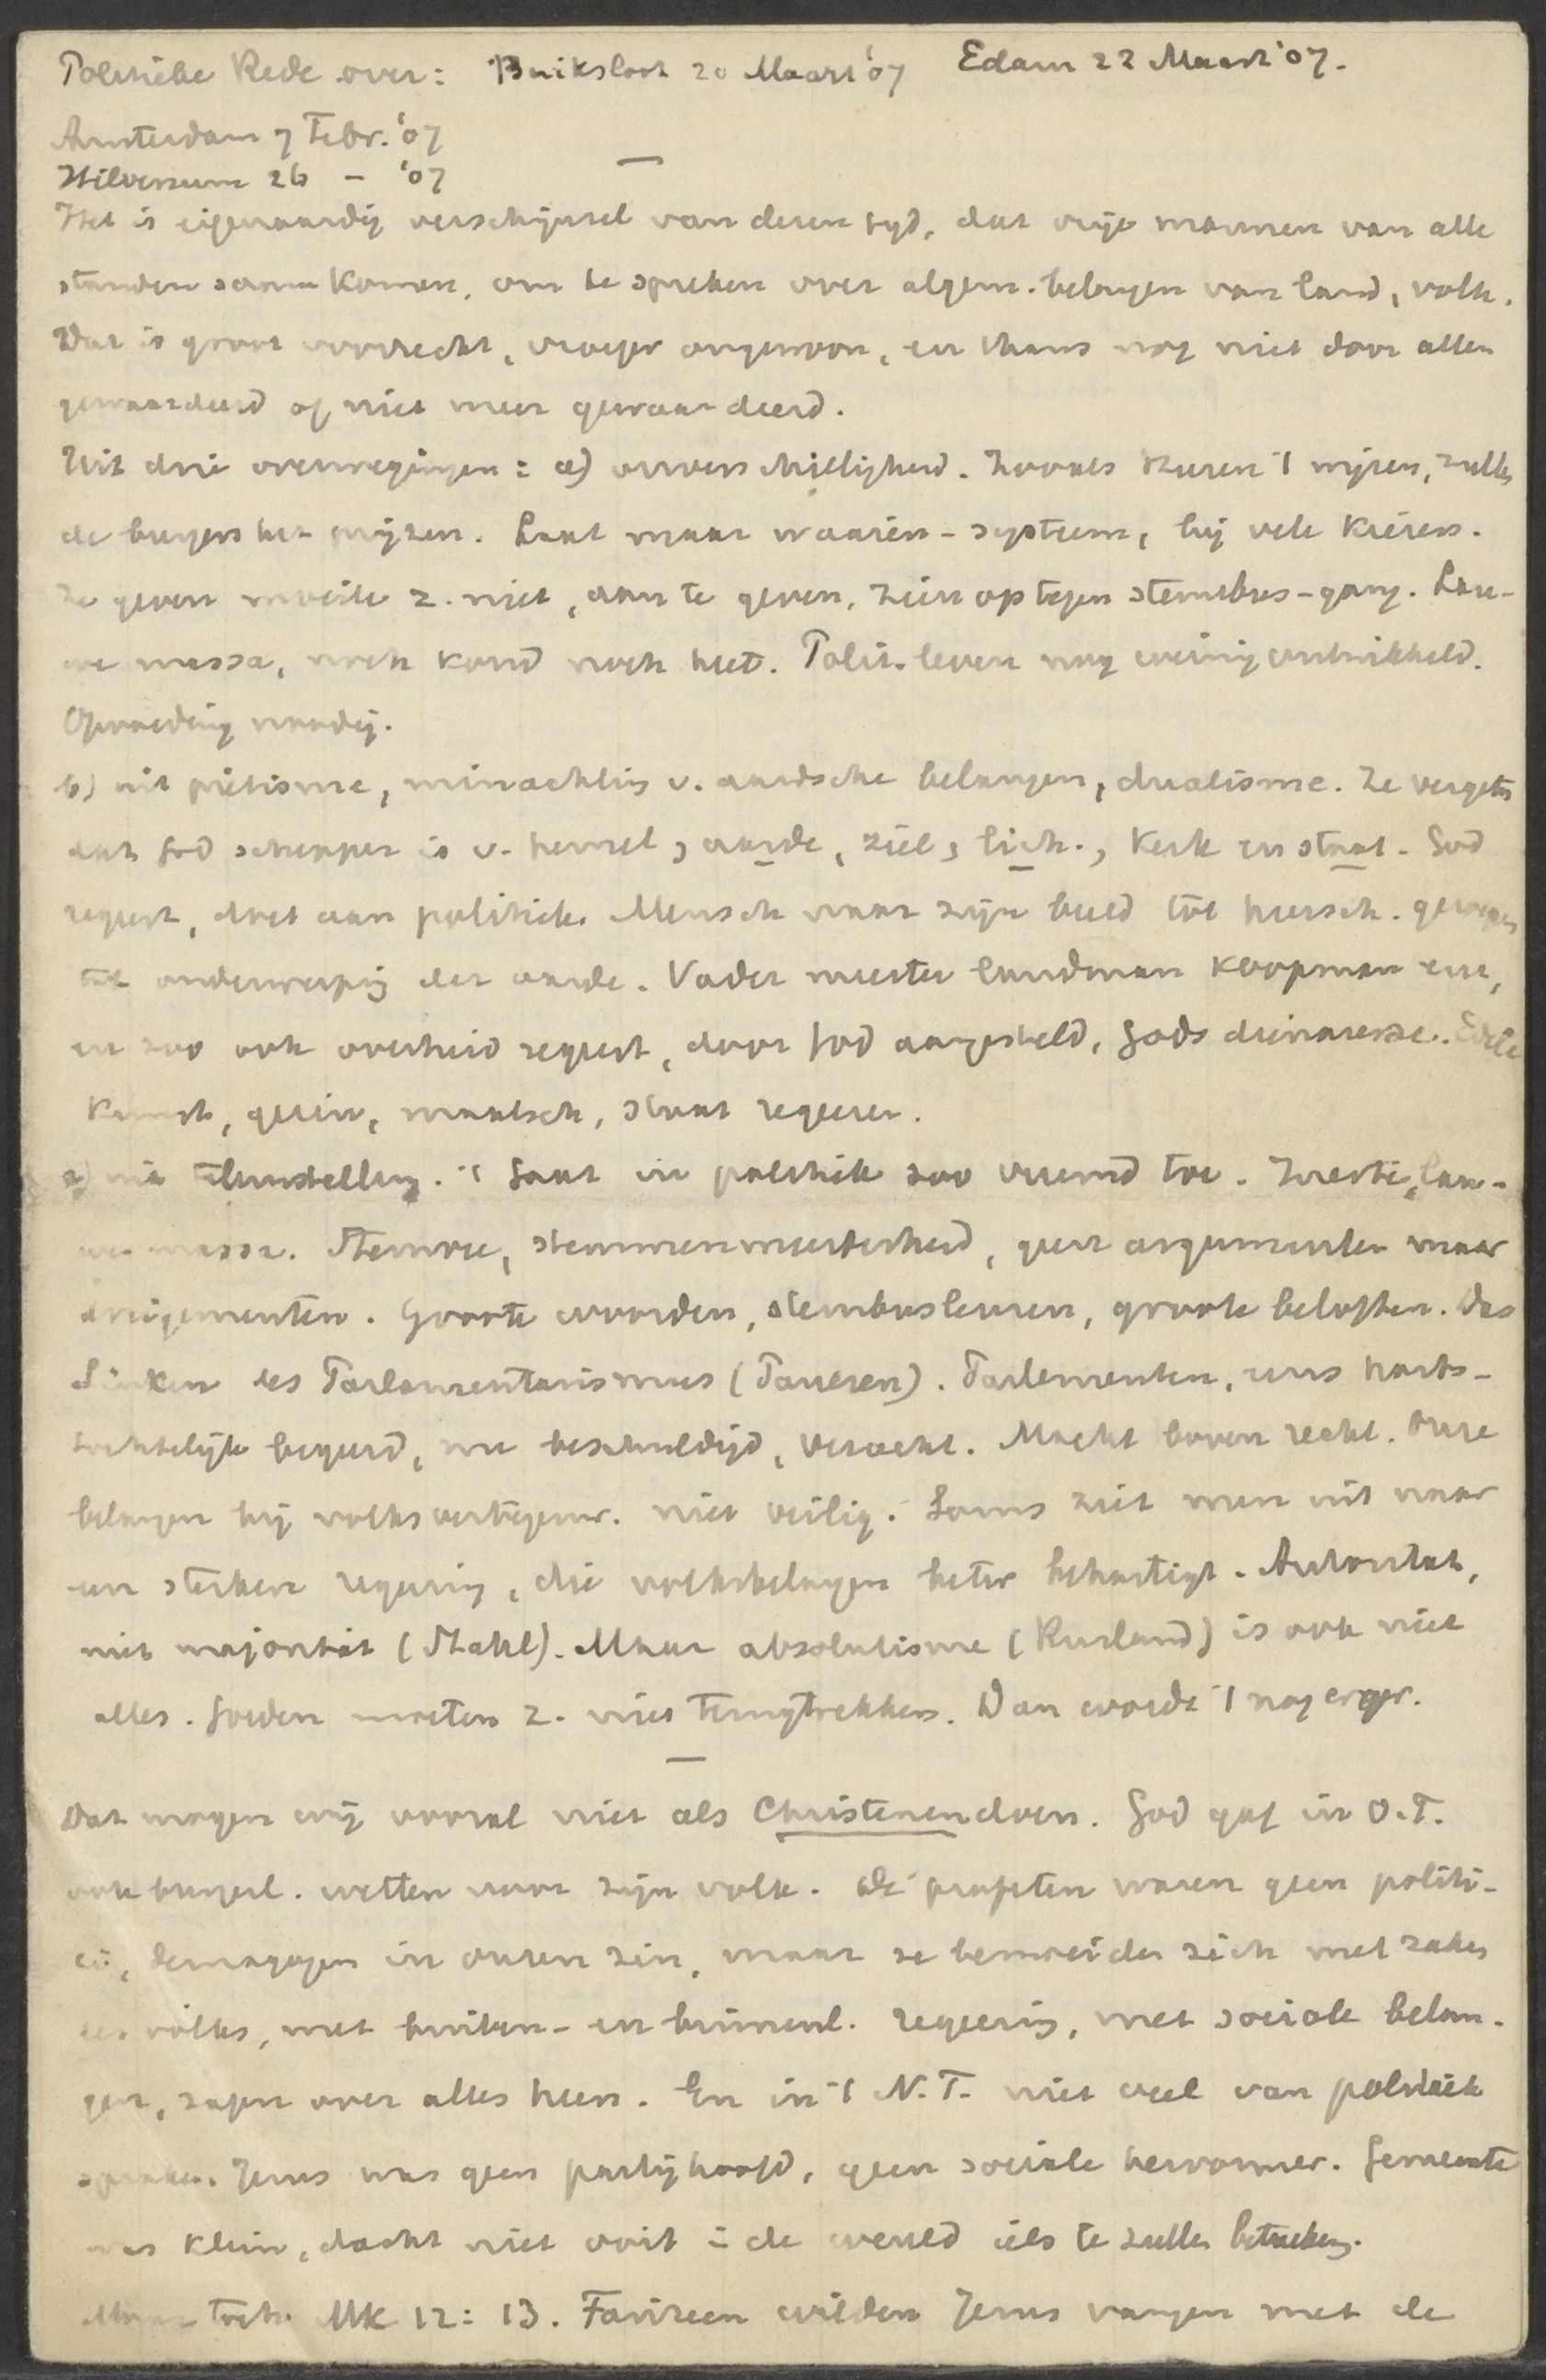 Politieke Rede over: Buiksloot 20 Maart '07 Edam 22 Maart '07.
Amsterdam 7 Febr. '07
Hilversum 26 – '07
Het is eigenaardig verschijnsel van dezen tijd, dat vrije mannen van alle
standen samenkomen, om te spreken over algem. belangen van land, volk.
Dat is groot voorrecht, vroeger ongewoon, en thans nog niet door allen
gewaardeerd of niet meer gewaardeerd.
Uit drie overwegingen: a) onverschilligheid. Zooals heeren 't wijzen, zullen
de burgers het prijzen. Laat maar waaien-systeem, bij vele kiezers.
Ze geven moeite z. niet, aan te geven, zien op tegen stembus-gang. Lau-
we massa, noch koud noch heet. Polit. leven nog weinig ontwikkeld.
Opvoeding noodig.
b) uit piëtisme, minachting v. aardsche belangen, dualisme. Ze vergeten
dat God schepper is v. hemel, aarde, ziel, lich., Kerk en staat. God
regeert, doet aan politiek. Mensch naar zijn beeld tot heersch. geroepen
tot onderwerping der aarde. Vader meester landman koopman enz,
en zoo ook overheid regeert, door God aangesteld, Gods dienaresse. Edele
Kunst, gezin, maatsch, staat regeeren.
uit teleurstelling. 't Gaat in politiek zoo vreemd toe. Kwestie, lau-
we massa. Stemvee, stemmenmeerderheid, geen argumenten maar
dreigementen. Groote woorden, stembusleuzen, groote beloften. Das
Sinken des Parlamentarismus (Paulsen). Parlementen, eens harts-
tochtelijk begeerd, nu beschuldigd, veracht. Macht boven recht. Onze
belangen bij volksvertegenw. niet veilig. Soms ziet men uit naar
een sterken regering, die volksbelangen beter behartigt. Autorität,
nicht majorität (Stahl). Maar absolutisme (Rusland) is ook niet
alles. Goeden moeten z. niet terugtrekken. Dan wordt 't nog erger.
Dat mogen wij vooral niet als Christenen doen. God gaf in O.T.
ook burgerl. wetten voor zijn volk. De profeten waren geen politi-
ci, demagogen in onzen zin, maar ze bemoeiden zich met zaken
des volks, met buiten- en binnenl. regeering, met sociale belan-
gen, zagen over alles heen. En in 't N.T. niet veel van politiek
sprake. Jezus was geen partijhoofd, geen sociale hervormer. Gemeente
was klein, dacht niet ooit i de wereld iets te zullen beteeken.
Maar toch. Mk 12: 13. Farizeen wilden Jezus vangen met de